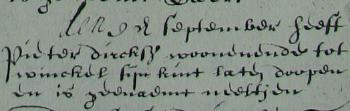 den 2 september heeft
Pieter dircksz woonenende tot
winckel sijn kint laten doopen
en is genaemt neeltjen